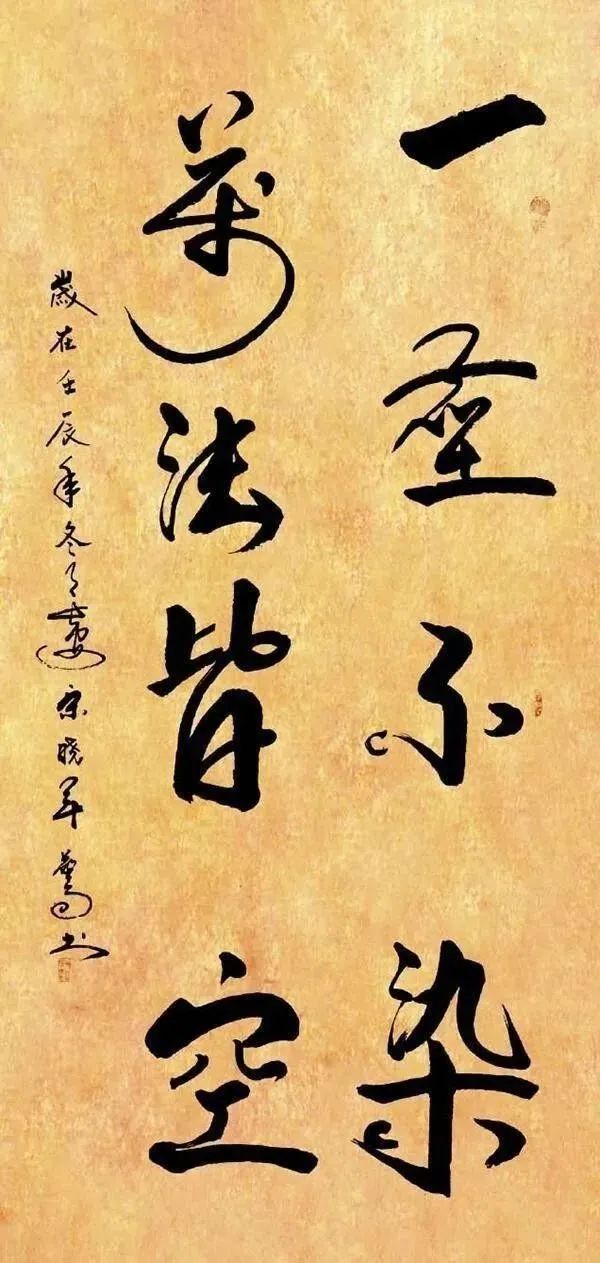 一塵不染
萬法皆空
歲在壬辰年冬月宋曉書